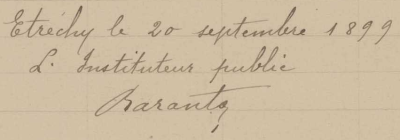 Etréchy le 20 septembre 1899
L'Instituteur public
Barantz